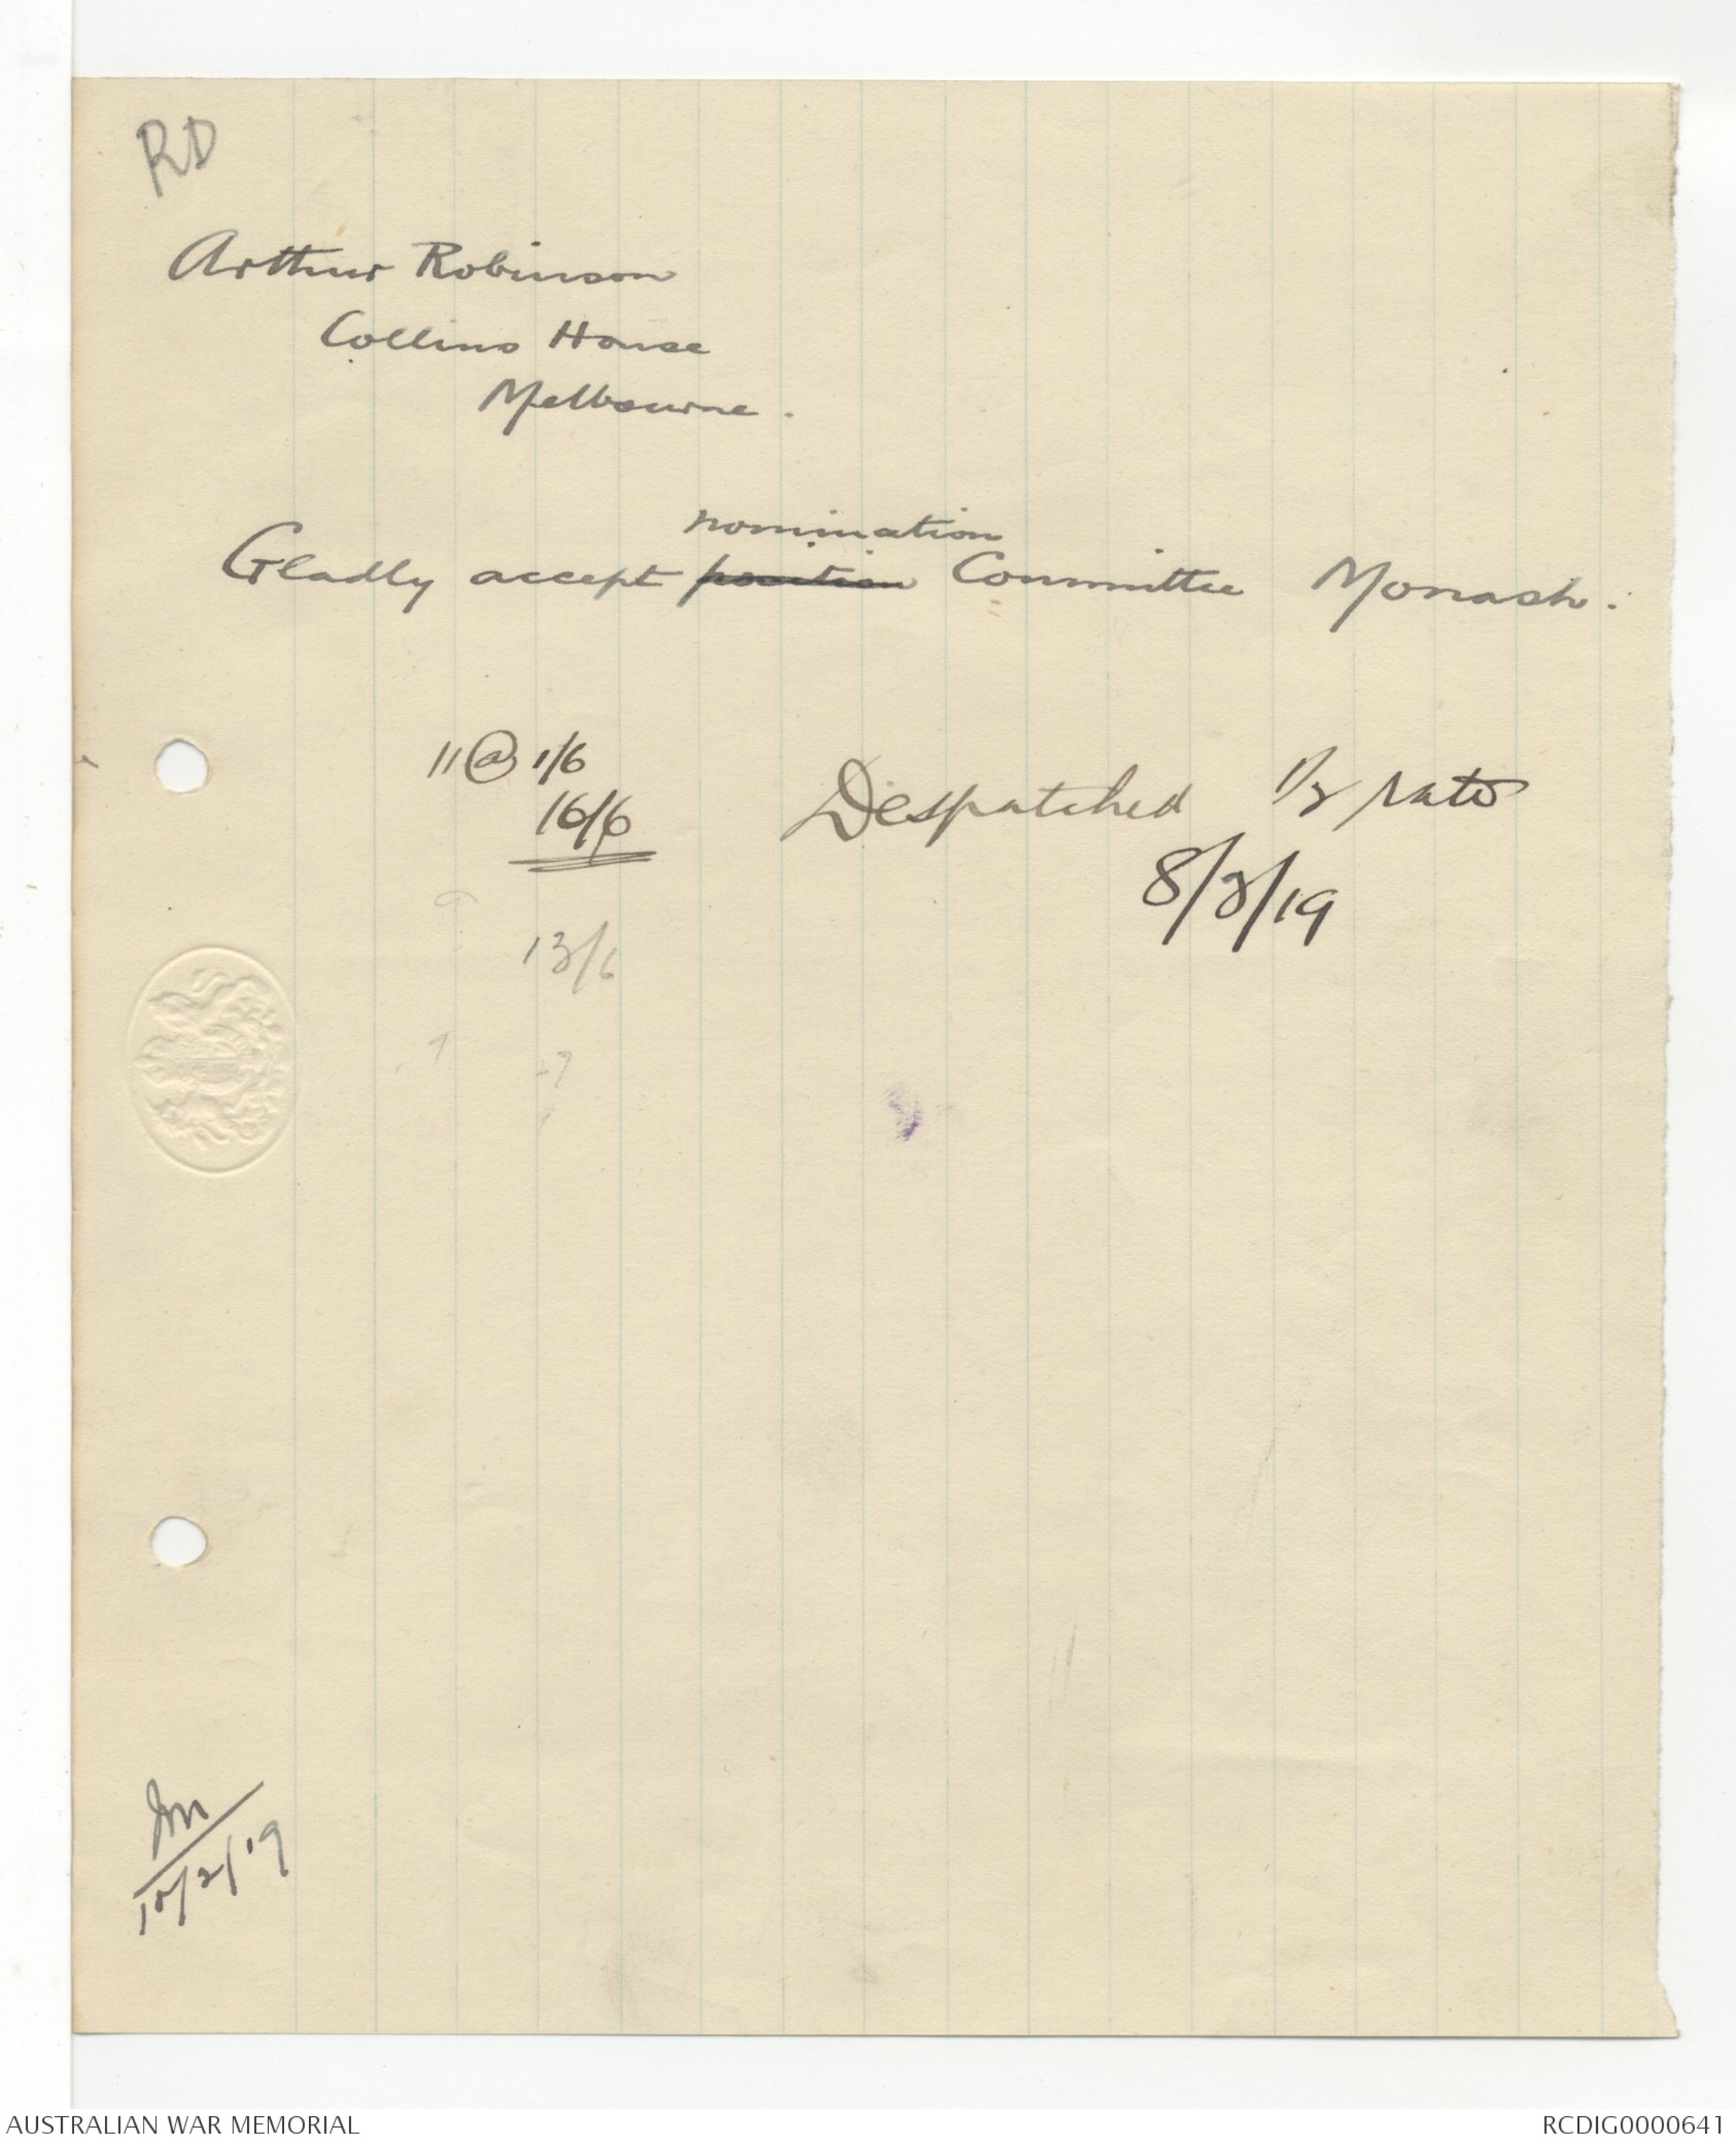 RD
Arthur Robinson
Collins House
Melbourne.
nomination
Gladly accept position Committee Monash.
11 @ 1/6
16/6
Despatched 1/2 rate
8/2/19
13/6
JM
10/2/19
AUSTRALIAN WAR MEMORIAL
RCDIG0000641